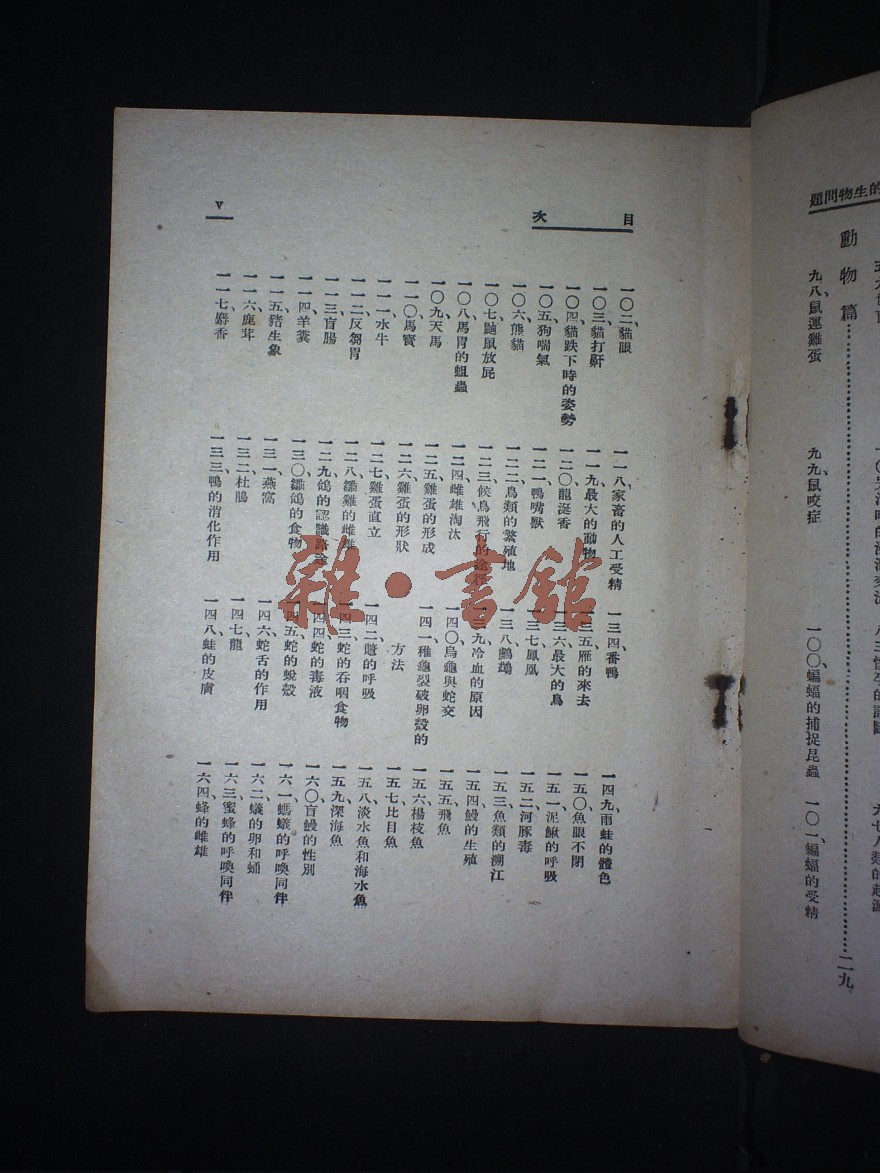 題問物生的
動物篇……二九
九八、鼠運雞蛋
九九、鼠咬症
一〇〇、蝙蝠的捕捉昆蟲
一〇一、蝙蝠的受精
目次
V
一〇二、貓眼
一〇三、貓打鼾
一〇四、貓跌下時的姿勢
一〇五、狗喘氣
一〇六、熊貓
一〇七、鼬鼠放屁
一〇八、馬胃的蛆蟲
一〇九、天馬
一一〇、馬寶
一一一、水牛
一一二、反芻胃
一一三、盲腸
一一四、羊糞
一一五、豬生象
一一六、鹿茸
一一七、麝香
一一八、家畜的人工受精
一一九、最大的動物
一二〇、龍涎香
一二一、鴨嘴獸
一二二、鳥類的繁殖地
一二三、候鳥飛行的途徑
一二四、雌雄淘汰
一二五、雞蛋的形成
一二六、雞蛋的形狀
一二七、雞蛋直立
一二八、雛雞的雌雄
一二九、鴿的認識路途
一三〇、雛鴿的食物
一三一、燕窩
一三二、杜鵑
一三三、鴨的消化作用
一三四、番鴨
一三五、雁的來去
一三六、最大的鳥
一三七、鳳凰
一三八、鸕鶿
一三九、冷血的原因
一四〇、烏龜與蛇交
一四一、稚龜裂破卵殼的
方法
一四二、鼈的呼吸
一四三、蛇的吞咽食物
一四四、蛇的毒液
一四五、蛇的蛻殼
一四六、蛇舌的作用
一四七、龍
一四八、蛙的皮膚
一四九、雨蛙的體色
一五〇、魚眼不閉
一五一、泥鰍的呼吸
一五二、河豚毒
一五三、魚類的溯江
一五四、鰻的生殖
一五五、飛魚
一五六、楊枝魚
一五七、比目魚
一五八、淡水魚和海水魚
一五九、深海魚
一六〇、盲鰻的性別
一六一、螞蟻的呼喚同伴
一六二、蟻的卵和蛹
一六三、蜜蜂的呼喚同伴
一六四、蜂的雌雄
雜·書館